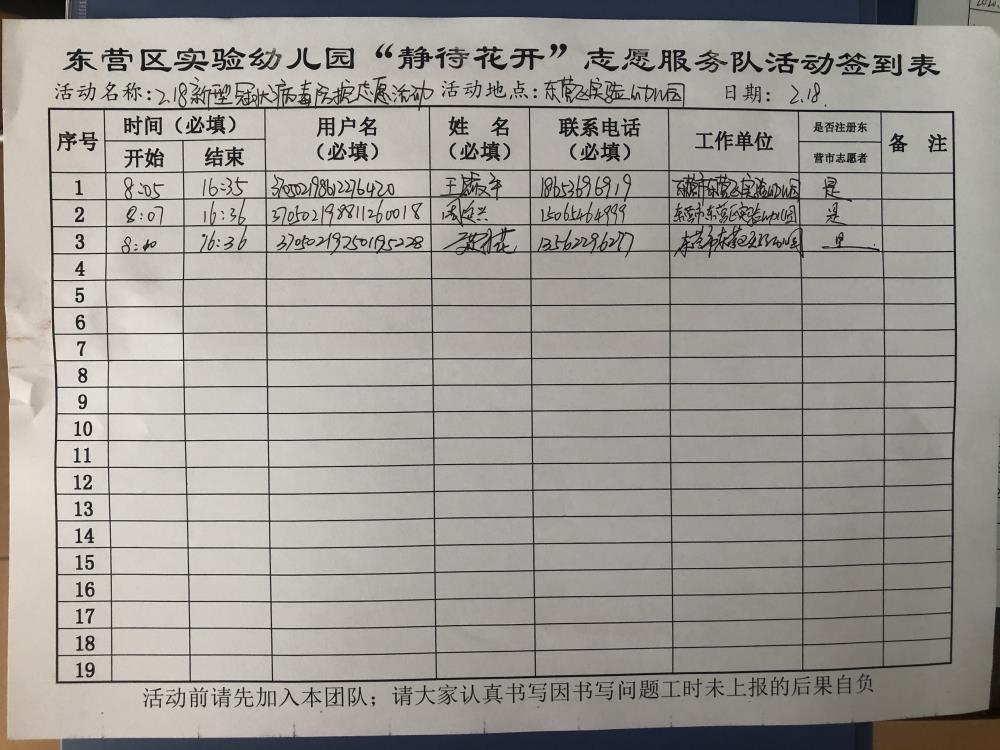 东营区实验幼儿园“静待花开”志愿服务队活动签到表
活动名称：2.18新型冠状病毒防控志愿活动 活动地点：东营区实验幼儿园 日期：2.18.
序号 时间（必填） 用户名（必填） 姓 名（必填） 联系电话（必填） 工作单位 是否注册东营市志愿者 备 注
开始 结束
1 8:05 16:35 370502198612276420 王 18653696919 东营市东营区实验幼儿园 是
2 8:07 16:36 370502198811260018 15065464999 东营市东营区实验幼儿园 是
3 16:36 370502197501195228 13562296277 东营市东营区实验幼儿园 是
4
5
6
7
8
9
10
11
12
13
14
15
16
17
18
19
活动前请先加入本团队；请大家认真书写因书写问题工时未上报的后果自负